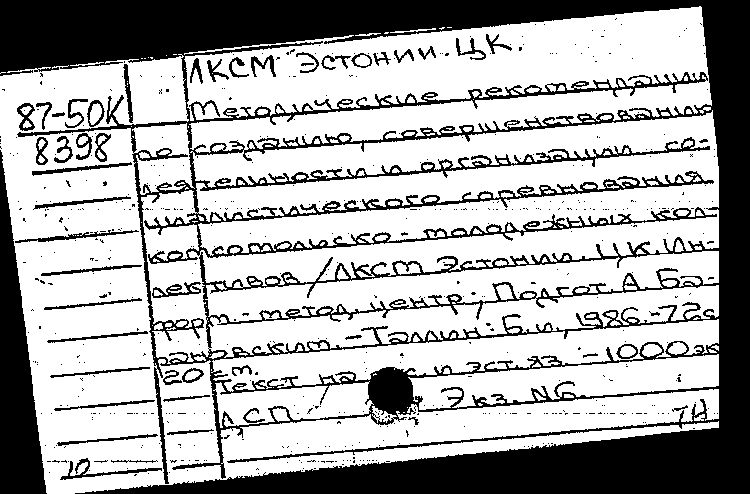 ЛКСМ Эстонии. ЦК.
87-50К
8398
Методические рекомендации
по созданию, совершенствованию
деятельности и организации со-
циалистического соревнования
комсомольско-молодежных кол-
лективов / ЛКСМ Эстонии. ЦК. Ин-
форм.-метод. центр; Подгот. А. Ба-
рановским. - Таллин: Б.и., 1986.-72с
20 см.
Текст на и эст. яз. - 1000 эк
ДСП Экз. N6.
10